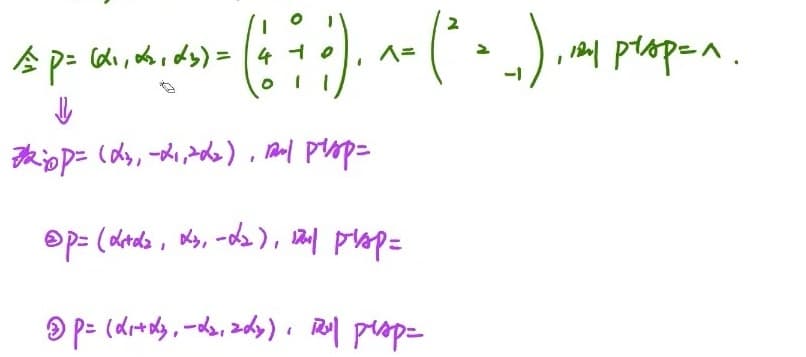 令 P = (α₁, α₂, α₃) = (1 0 1; 4 -1 0; 0 1 1), Λ = (2 2 -1), 则 P⁻¹AP = Λ.
⇓
改: ① P = (α₃, -α₁, 2α₂), 则 P⁻¹AP =
② P = (α₁+α₂, α₃, -α₂), 则 P⁻¹AP =
③ P = (α₁+α₃, -α₂, 2α₃), 则 P⁻¹AP =